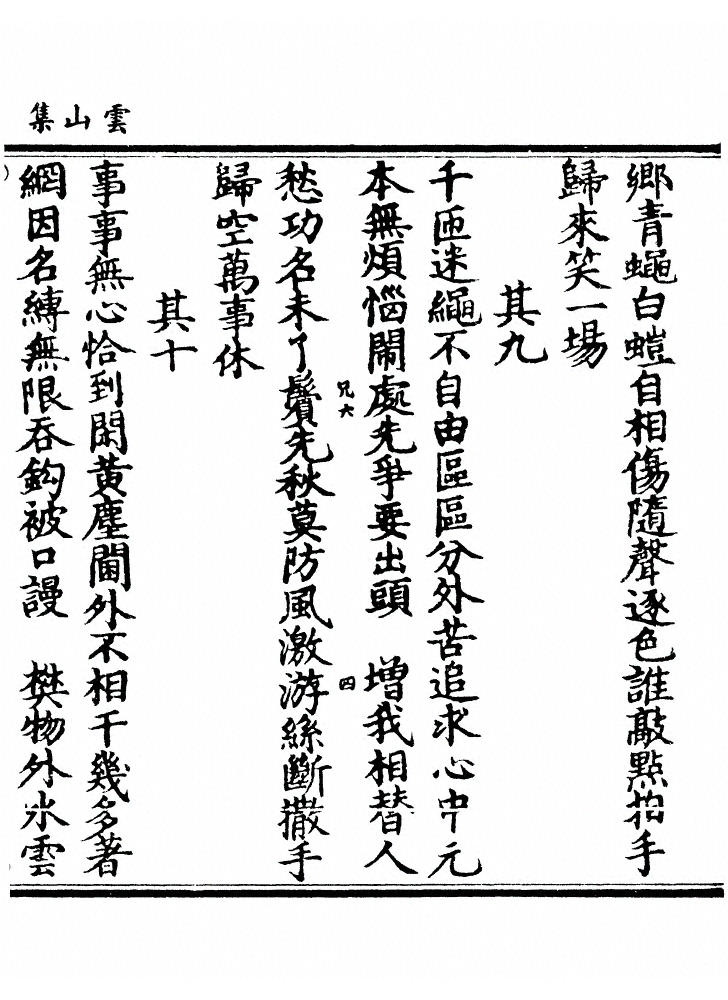 雲山集
鄉青蠅白螘自相傷隨聲逐色誰敲點拍手
歸來笑一場
其九
千匝迷繩不自由區區分外苦追求心中元
本無煩惱鬧處先爭要出頭 增我相替人
愁功名未了鬢先秋莫防風激游絲斷撒手
歸空萬事休
其十
事事無心恰到閑黃塵闤外不相干幾多著
網因名縛無限吞鈎被口謾 樊物外水雲
兄六
四